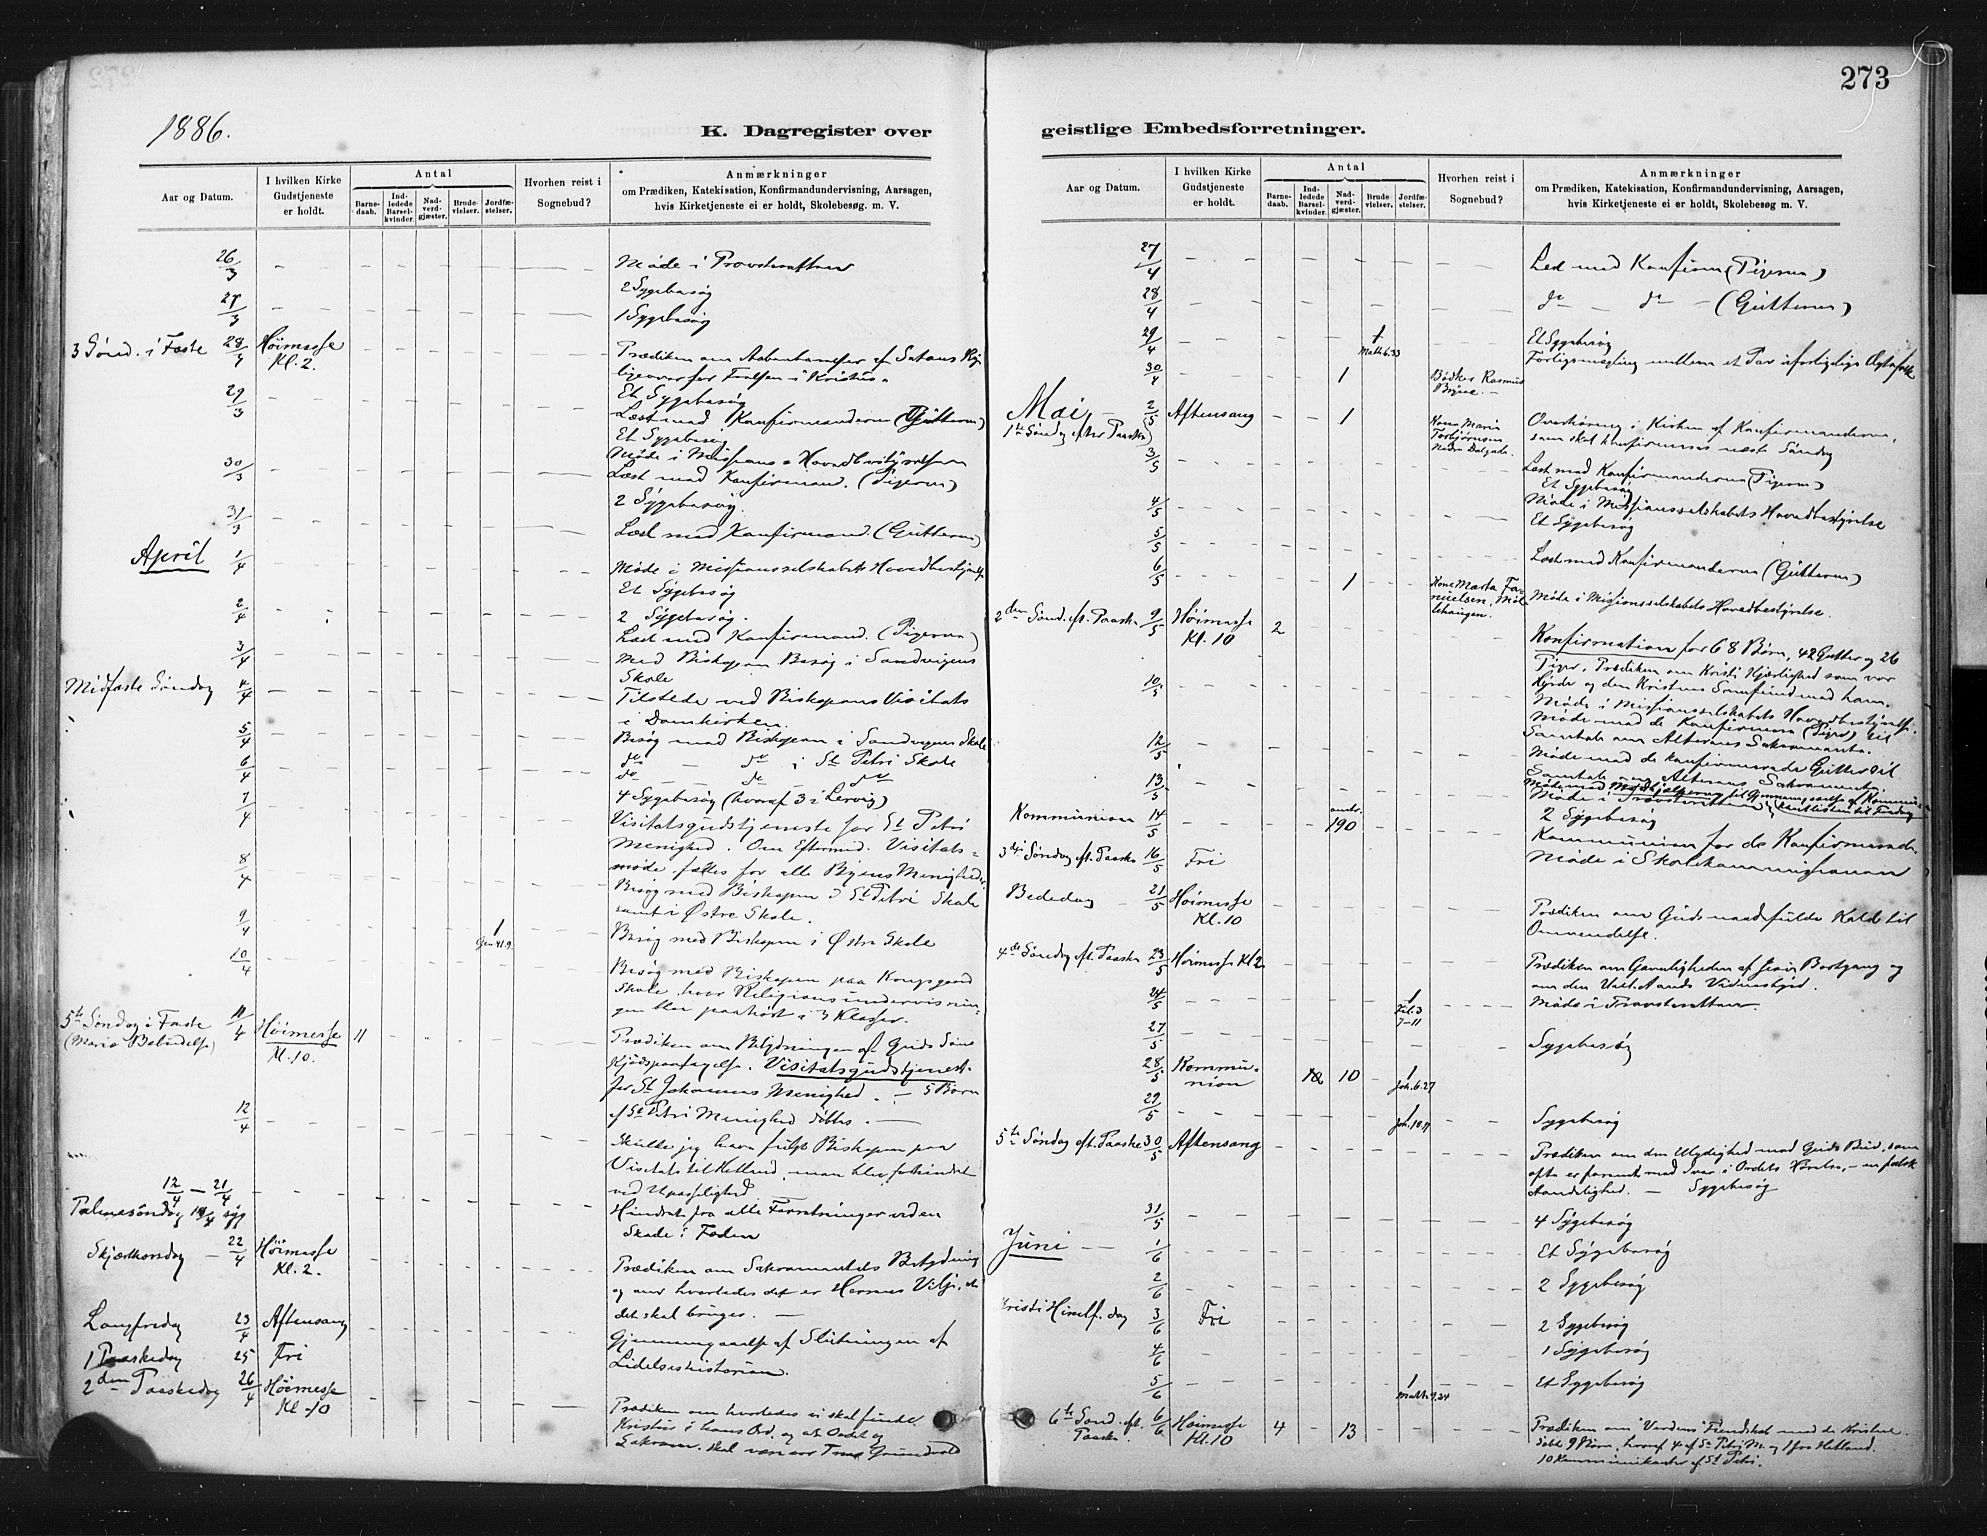 273
1886.
K. Dagregister over
geistlige Embedsforretninger.
Aar og Datum.
I hvilken Kirke Gudstjeneste er holdt.
Antal
Barnedaab.
Indledede Barselkvinder.
Nadverdgjæster.
Brudevielser.
Jordfæstelser.
Hvorhen reist i Sognebud?
Anmærkninger
om Prædiken, Katekisation, Konfirmandundervisning, Aarsagen,
hvis Kirketjeneste ei er holdt, Skolebesøg m. V.
26/3 Møde i Provsteretten
2 Sygebesøg
27/3 1 Sygebesøg
3 Sønd. i Faste 28/3 Høimesse Kl. 2.
Prædiken om Aabenbarelser af Satans Rige
ligeoverfor Frelsen i Kristus.
29/3 Et Sygebesøg
Læst med Konfirmanderne (Gutterne)
Et Sygebesøg
30/3 Møde i Missions-Hovedbestyrelsen
Læst med Konfirmand. (Pigerne)
2 Sygebesøg.
31/3 Læst med Konfirmand. (Gutterne)
April 1/4 Møde i Missionsselskabets Hovedbestyrelse
Et Sygebesøg
2/4 2 Sygebesøg.
Læst med Konfirmand. (Pigerne)
3/4 Med Biskopen Besøg i Sandvigens
Skole
Midfaste Søndag 4/4 Tilstede ved Biskopens Visitats
i Domkirken.
5/4 Besøg med Biskopen i Sandvigens Skole
6/4 do — do i St Petri Skole
do do do
7/4 4 Sygebesøg (hvoraf 3 i Lervig)
Visitatsgudstjeneste for St Petri
Menighed. Om Eftermid. Visitats-
møde fælles for alle Byens Menigheder.
8/4 Besøg med Biskopen i St Petri Skole
samt i Østre Skole.
9/4 1 Gen 41.9. Besøg med Biskopen i Østre Skole
10/4 Besøg med Biskopen paa Kongsgaard
Skole, hvor Religionsundervisnin-
gen blev paahørt i 3 Klasser.
5te Søndag i Faste (Mariæ Bebudelse) 11/4 Høimesse Kl. 10. 11
Prædiken om Betydningen af Guds Søns
Kjødspaatagelse. Visitatsgudstjenest.
for St Johannes Menighed. — 5 Børn
af St Petri Menighed døbtes. —
12/4 Skulde jeg have fulgt Biskopen paa
Visitats til Hetland, men blev forhindret
ved Upasselighed
12/4 — 21/4
Palmesøndag 18/4 syg
Hindret fra alle Forretninger ved en
Skade i Foden
Skjærthorsdag — 22/4 Høimesse Kl. 2.
Prædiken om Sakramentets Betydning
og om hvorledes det er Herrens Vilje, at
det skal bruges. —
Langfredag 23/4 Aftensang
Gjennemgaaelse af Slutningen af
Lidelseshistorien.
1 Paaskedag 25 Fri
2den Paaskedag 26/4 Høimesse Kl. 10
Prædiken om hvorledes vi skal finde
Kristus i hans Ord, og at Ordet og
Sakram. skal være vor Tros Grundvold
Aar og Datum.
I hvilken Kirke Gudstjeneste er holdt.
Antal
Barnedaab.
Indledede Barselkvinder.
Nadverdgjæster.
Brudevielser.
Jordfæstelser.
Hvorhen reist i Sognebud?
Anmærkninger
om Prædiken, Katekisation, Konfirmandundervisning, Aarsagen,
hvis Kirketjeneste ei er holdt, Skolebesøg m. V.
27/4 Læst med Konfirm. (Pigerne)
28/4 do — do — (Gutterne)
29/4 1 Math 6.33 Et Sygebesøg
Forligsmægling mellem et Par uforligelige Ægtefolk
30/4 1 Bødker Rasmus
Mai — 2/5 Aftensang 1
1ste Søndag efter Paaske
Kone Maria Torbjørnsen
Overhøring i Kirken af Konfirmanderne,
som skal konfirmeres næste Søndag
3/5 Læst med Konfirmanderne (Pigerne)
Et Sygebesøg
4/5 Møde i Missionsselskabets Hovedbestyrelse
Et Sygebesøg
5/5 Læst med Konfirmanderne (Gutterne)
6/5 1 Kone Marta
Møde i Missionsselskabets Hovedbestyrelse.
2den Sønd. eft. Paaske 9/5 Høimesse Kl. 10 2
Konfirmation for 68 Børn, 42 Gutter og 26
Piger. Prædiken om Kristi Kjærlighed som vor
Hyrde og den Kristnes Samfund med ham.
10/5 Møde i Missionsselskabets Hovedbestyrelse.
Møde med de Konfirmerte (Piger) til
Samtale om Alterens Sakramente.
12/5 Møde med de konfirmerede Gutter til
Samtale om Alterens Sakramente
13/5 Møde i Provsteretten
2 Sygebesøg
Kommunion 14/5 190
Kommunion for de Konfirmerede
3die Søndag eft. Paaske 16/5 Fri
Møde i Skolekommissionen
Bededag — 21/5 Høimesse Kl. 10
Prædiken om Guds naadefulde Kald til
Omvendelse.
4de Søndag eft. Paaske 23/5 Høimesse Kl 2
Prædiken om Gavnligheden af Jesu Bortgang og
om den Hell. Aands Vidnesbyrd.
24/5 1 Fil. 3 7-11 Møde i Provsteretten.
27/5 Sygebesøg
28/5 Kommunion 10 1 Joh. 6.27
29/5 1 Joh. 10.11 Sygebesøg
5te Søndag eft. Paaske 30/5 Aftensang
Prædiken om den Ulydighed mod Guds Bud, som
ofte er forenet med Iver i Ordets Hørelse, — en falsk
Aandelighed. — Sygebesøg
31/5 4 Sygebesøg
Juni — 1/6 Et Sygebesøg
2/6 2 Sygebesøg
Kristi Himelf. dag 3/6 Fri 2 Sygebesøg
4/6 1 Sygebesøg
5/6 1 Math. 9.24 Et Sygebesøg
6te Sønd. eft. Paaske. 6/6 Høimesse Kl. 10 4 13
Prædiken om Verdens Fiendskab mod de Kristne.
Døbt 9 Børn, hvoraf 4 af St Petri M. og 1 fra Hetland.
10 Kommunikanter af St Petri.